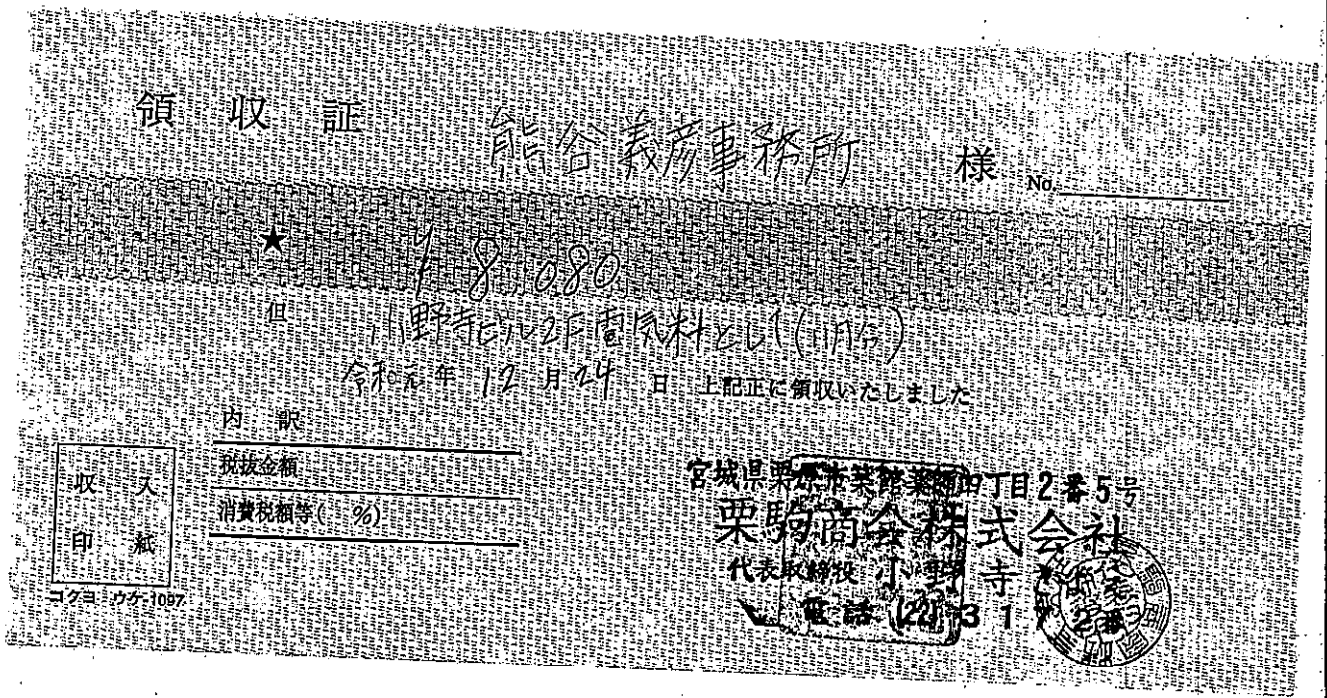 領収証 熊谷義彦事務所 様 No.
★ ¥8,080
但 小野寺ビル2F電気料として(11月分)
令和元年12月24日 上記正に領収いたしました
内訳
税抜金額
消費税額等( %)
収入
印紙
コクヨ ウケ-1097
宮城県栗原市築館薬師四丁目2番5号
栗駒商会株式会社
代表取締役 小野寺
電話 (22) 31